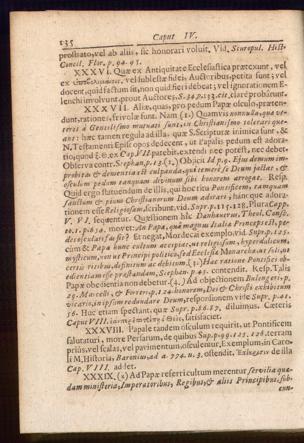 135 Caput IV.
prostrato, vel ab aliis, sic honorari voluit. Vid. Sieropol. Hist.
Concil. Flor. p. 92. 93.
XXXVI. Quæ ex Antiquitate Ecclesiastica prætexunt, vel
ex vel sublestæ fidei, Auctoribus, petita sunt; vel
docent, quid factum sit, non quid fieri debeat; vel ignorationem E-
lenchi involvunt, prout Auctores, S. 34. p. 133. cit. clarè probârunt.
XXXVII. Aliæ, quas, pro pedum Papæ osculo, præten-
dunt, rationes, frivolæ sunt. Nam (1.) Quamvis nonnulla, quæ ve-
teres à Gentilismo mutuati sunt, in Christianismo tolerari que-
ant: hæc tamen regula ad illa, quæ S. Scripturæ inimica sunt, &
N. Testamenti Episcopos dedecent, ut Papalis pedum est adora-
tio, quod §. 9. ex Cap. VII. patebit. extendi nec potest, nec debet.
Observa contr. Stephan. p. 13. (2.) Objicit Id. p. 9. Ejus demum im-
probitas & dementia est culpanda, qui temerè se Deum pollet, &
osculum pedum tanquam divinum sibi honorem arrogat. Resp.
Quid ergo statuendum de illis, qui hoc ritu Pontificem, tamquam
sanctum & pium Christianorum Deum adorant; hanc que adora-
tionem esse Religiosam, scribunt, vid. Supr. p. 115. 118. Plura Capp.
V. VI. sequentur. Quæstionem hîc Danhauerus, Theol. Consc.
10. 1. p. 634. movet: An Papa, quâ magnus Italiæ Princeps est, pe-
des osculari fas sit? Et negat. Mordacai exemplo vid. Supr. p. 125.
cùm & Papa hunc cultum accipiat, ut religiosum, hyperdulicum,
mysticum, non ut Princeps politicus, sed Ecclesiæ Monarcha: as fiet, ut
certis ritibus, definitum ac debitum. (3.) Hac ratione Pontifici ob-
edientiam esse præstandam, Stephan. p. 43. contendit. Resp. Talis
Papæ obedientia non debetur. (4.) Ad objectionem p.
23. Marcell., & p. 124. honorem, Dei & Christi exhibitum
vicario, in ipsum redundare Deum, responsionem vide Supr. p. 41.
56. Huc etiam spectant, quæ Supr. p. 56. 57. diluimus. Cæteris
Caput VIII. satisfaciet.
XXXVIII. Papale tandem osculum requirit, ut Pontificem
salutaturi, more Persarum, de quibus Sup. p. 99. 125. 126. terram
priùs, vel scalas, vel pavimentum, osculentur, Exemplum, in Caro-
li M. Historia, Baronius, ad a. 774. n. 3. ostendit. de illa
Cap. VIII. ad let.
XXXIX. (2) Ad Papæ referri cultum merentur servilia quæ-
dam ministeria, Imperatoribus, Regibus, & aliis Principibus, sub-
eun-